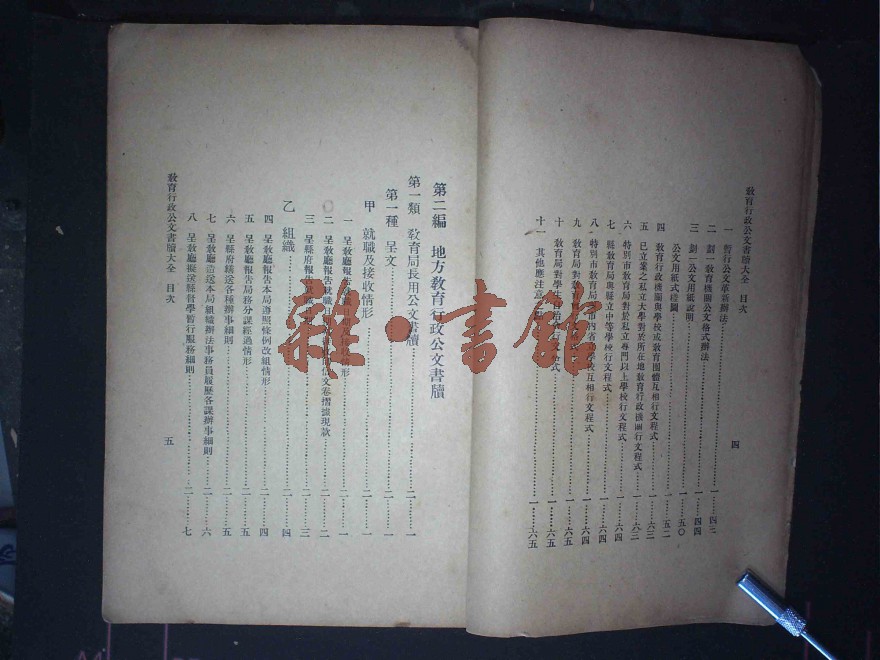 教育行政公文書牘大全 目次 四
一 暫行公文革新辦法⋯⋯一·四三
二 劃一教育機關公文格式辦法⋯⋯一·四四
三 劃一公文用紙說明⋯⋯一·五〇
公文用紙式樣圖⋯⋯一·五二
四 教育行政機關與學校或教育團體互相行文程式⋯⋯一·六三
五 已立案之私立大學對於所在地教育行政機關行文程式⋯⋯一·六三
六 特別市教育局對於私立專門以上學校行文程式⋯⋯一·六四
七 縣教育局與縣立中等學校行文程式⋯⋯一·六四
八 特別市教育局
學校互相行文程式⋯⋯一·六四
九 教育局對教育
⋯⋯一·六五
十 教育局對學生自治會行文程式⋯⋯一·六五
十一 其他應注意
⋯⋯一·六五
第二編 地方教育行政公文書牘
第一類 教育局長用公文書牘⋯⋯二·一
第一種 呈文⋯⋯二·一
甲 就職及接收情形⋯⋯二·一
一 呈教廳報告就職日期及接收情形⋯⋯二·一
二 呈教廳報告就職日期
文卷摺據現款⋯⋯二·二
三 呈縣府報告就職
⋯⋯二·三
乙 組織⋯⋯二·四
四 呈教廳報告本局遵照條例改組情形⋯⋯二·四
五 呈教廳報告局務分課經過情形⋯⋯二·五
六 呈縣府轉送各種辦事細則⋯⋯二·五
七 呈教廳造送本局組織辦法事務員履歷各課辦事細則⋯⋯二·六
八 呈教廳擬送縣督學暫行服務細則⋯⋯二·七
教育行政公文書牘大全 目次 五
雜·書館